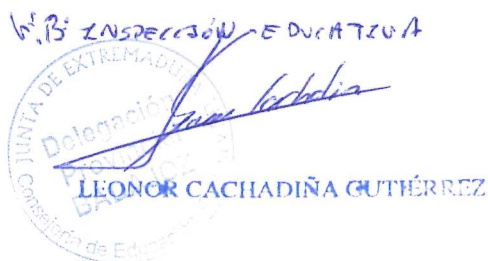 Vº Bº INSPECCIÓN EDUCATIVA
JUNTA DE EXTREMADURA
Delegación
Provincial
BADAJOZ
Consejería de Educación
LEONOR CACHADIÑA GUTIÉRREZ